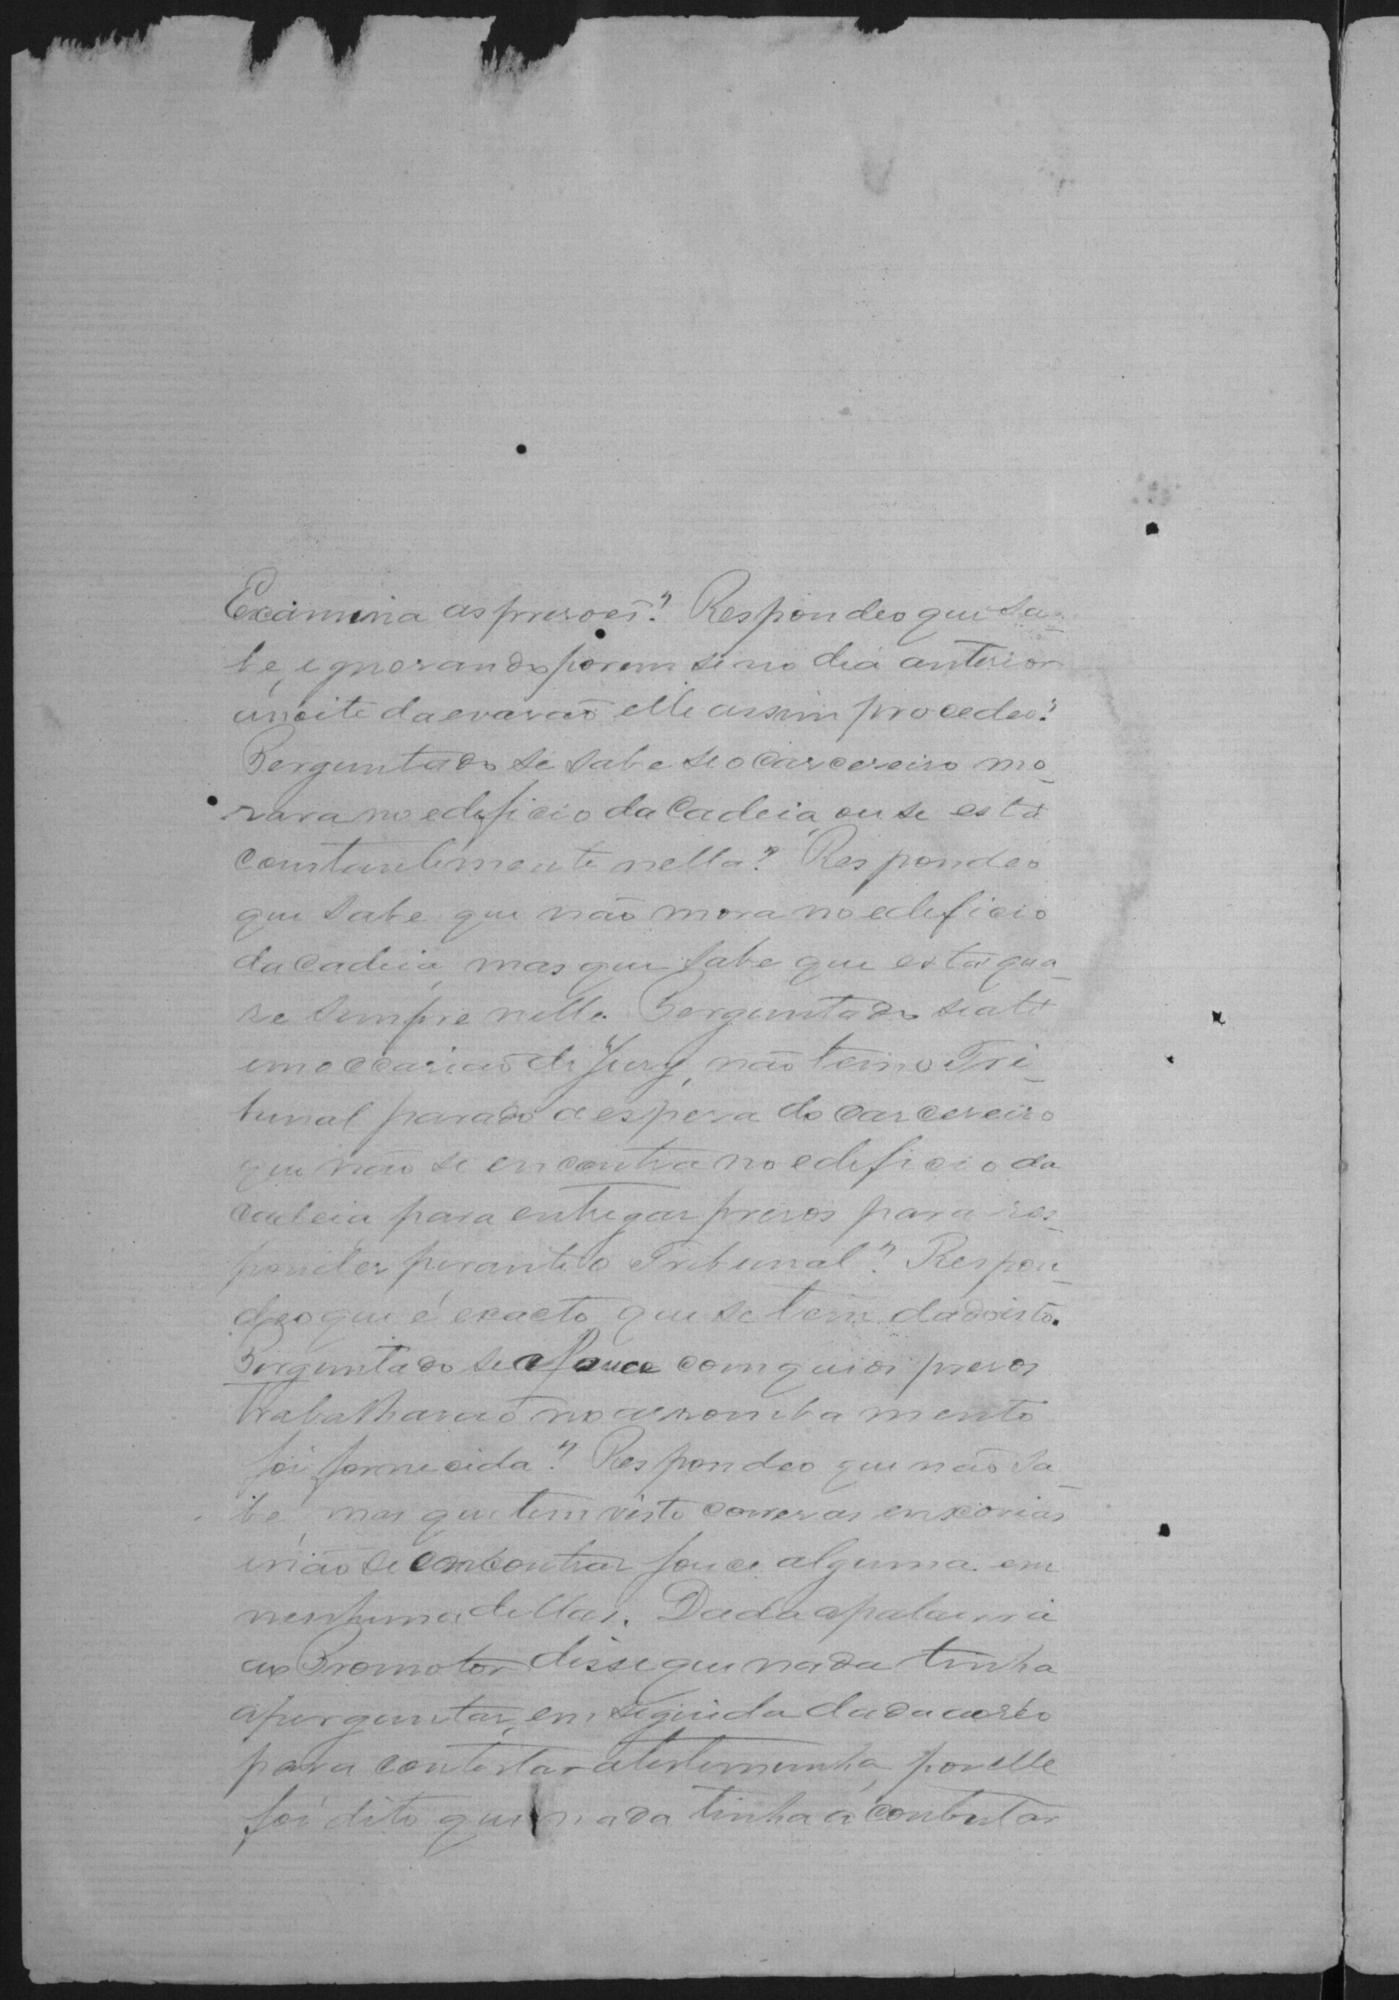 Examina as prisoes? Respondeo que sa-
be, ignorando porem si no dia anterior
a noite da evasaõ elle assim procedeo?
Perguntado se sabe se o Carcereiro mo-
rava no edificio da Cadeia, ou se está
constantemente nella? Respondeo
que sabe que não mora no edificio
da cadeia, mas que sabe que está qua-
se sempre nella. Perguntado se até
em occasiaõ de Jury, não tem o Tri-
bunal parado a espera do carcereiro
que não se encontra no edificio da
cadeia para entregar presos para res-
ponder perante o Tribunal? Respon-
deo que é exacto que se tem dado isto.
Perguntado se a fouce com que os presos
trabalharaõ no arrombamento
foi fornecida? Respondeo que não sa-
be, mas que tem visto correr as enxovias
e não se encontrar fouce alguma em
nenhuma dellas. Dada a palavra
ao Promotor disse que nada tinha
a perguntar, em seguida dada ao réo
para contestar a testemunha, por elle
foi dito que nada tinha a contestar